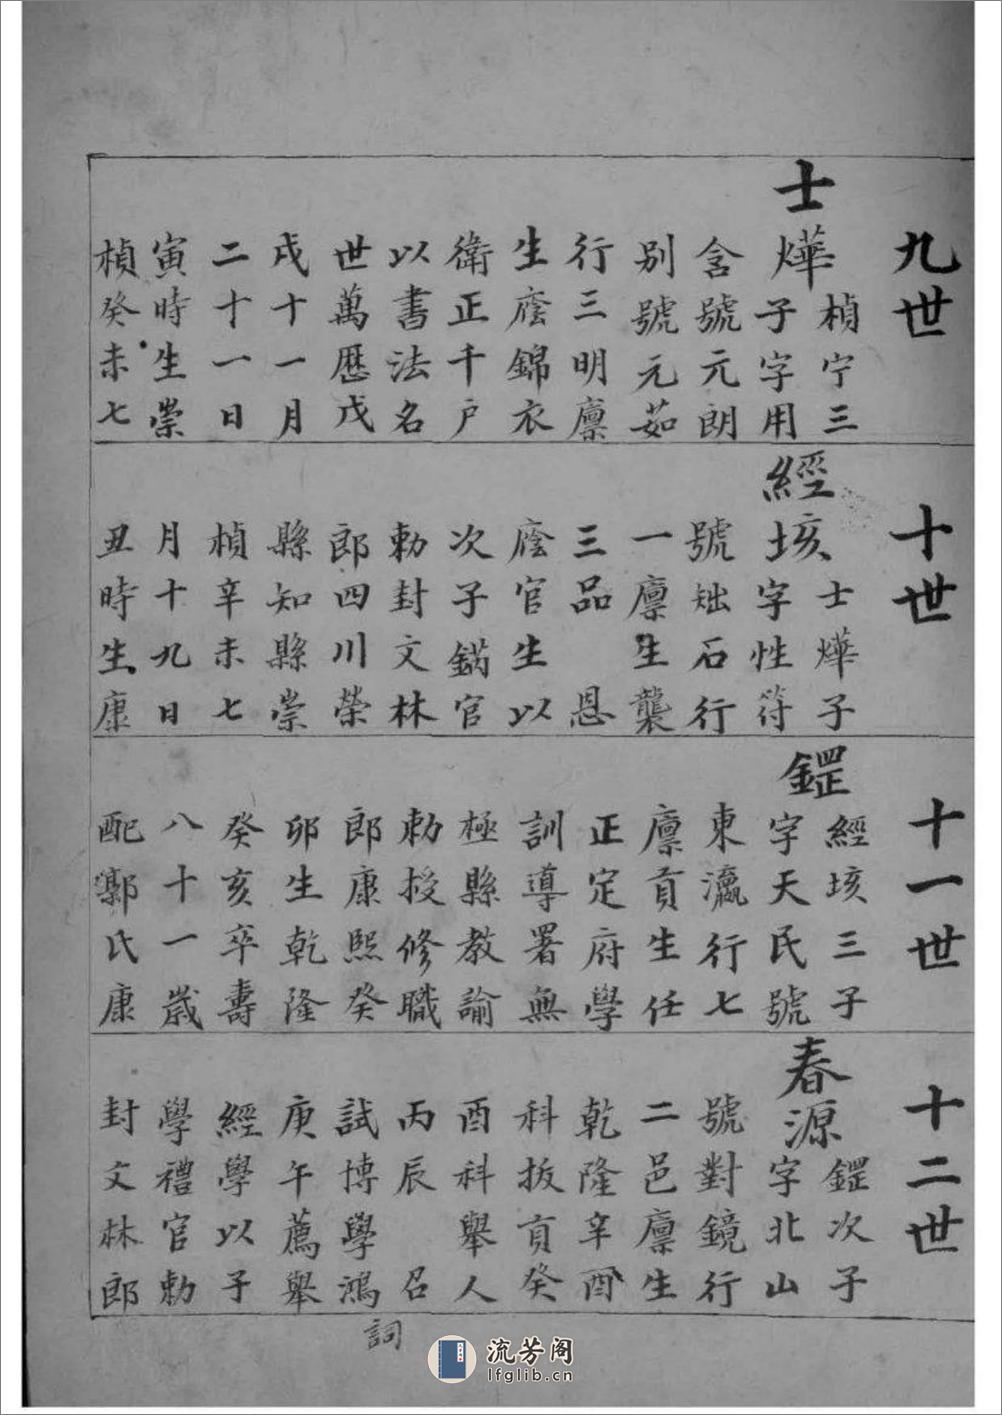 九世
士燁
楨宁三
子字用
含號元朗
別號元茹
行三明廪
生廕錦衣
衛正千户
以書法名
世萬歷戊
戌十一月
二十一日
寅時生崇
楨癸未七
十世
經垓
士燁子
字性符
號础石行
一廪生襲
三品 恩
廕官生以
次子鎬官
勅封文林
郎四川榮
縣知縣崇
楨辛未七
月十九日
丑時生康
十一世
鋞
經垓三子
字天民號
東瀛行七
廪貢生任
正定府學
訓導署無
極縣教諭
勅授修職
郎康熙癸
卯生乾隆
癸亥卒壽
八十一歲
配郭氏康
十二世
春源
鋞次子
字北山
號對鏡行
二邑廪生
乾隆辛酉
科拔貢癸
酉科舉人
丙辰 召
試博學鴻
詞
庚午薦舉
經學以子
學禮官勅
封文林郎
流芳阁
lfglib.cn